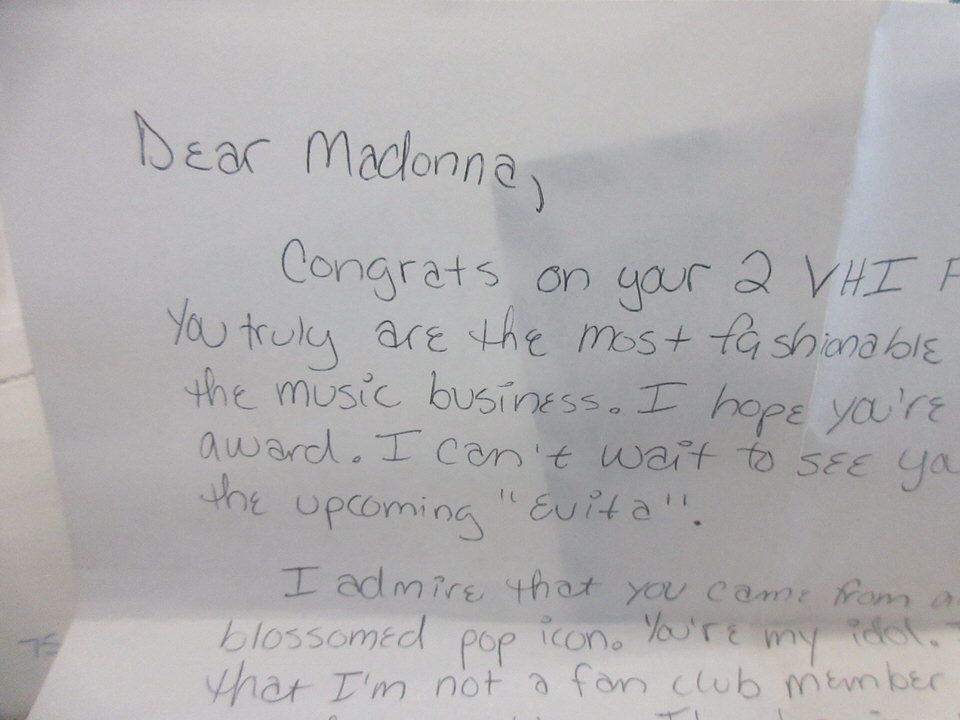 Dear Madonna,
Congrats on your 2 VH1 F
You truly are the most fashionable
the music business. I hope you're
award. I can't wait to see yo
the upcoming "Evita".
I admire that you came from a
blossomed pop icon. You're my idol.
that I'm not a fan club member